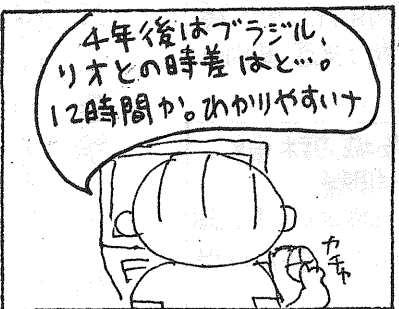 4年後はブラジル、
リオとの時差はと…。
12時間か。わかりやすいナ
カチャ